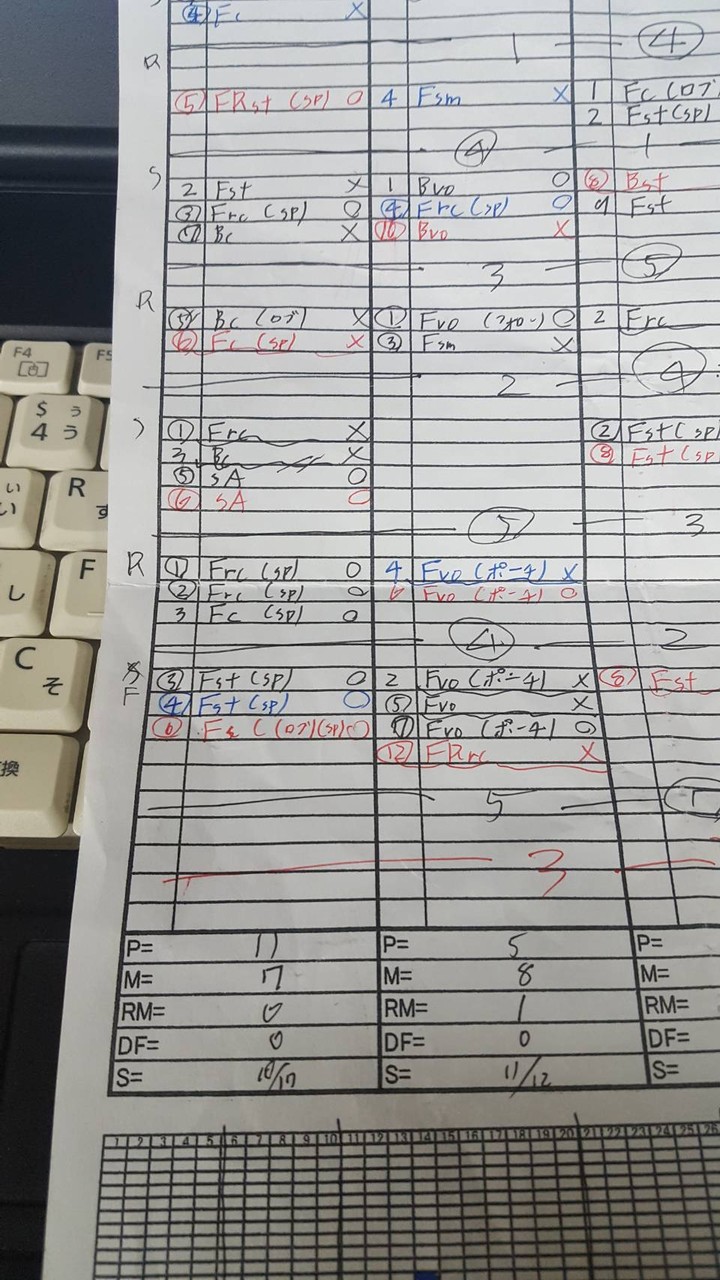 ④ Fc X
1 ④
R
⑤ FRst (sp) O 4 Fsm X 1 Fc (ロブ)
2 Fst (sp)
④ 1
S
2 Fst X 1 Bvo O ⑧ Bst
③ Frc (sp) O ④ Frc (sp) O 9 Fst
⑦ Bc X ⑩ Bvo X
3 ⑤
R
⑤ Bc (ロブ) X ① Fvo O 2 Frc
⑥ Fc (sp) X ③ Fsm X
2 ④
① Frc X ② Fst (sp)
3 Bc X ⑧ Fst (sp)
⑤ SA O
⑥ SA O
⑤ 3
R
① Frc (sp) O 4 Fvo (ポーチ) X
② Frc (sp) O 6 Fvo (ポーチ) O
3 Fc (sp) O
④ 2
F
③ Fst (sp) O 2 Fvo (ポーチ) X ⑧ Fst
④ Fst (sp) O ⑤ Fvo X
⑥ (ロブ)(sp) O Fvo (ポーチ) O
⑫ FRrc X
5
3
P= 11 P= 5 P=
M= 7 M= 8 M=
RM= 0 RM= 1 RM=
DF= 0 DF= 0 DF=
S= 10/17 S= 11/12 S=
1 2 3 4 5 6 7 8 9 10 11 12 13 14 15 16 17 18 19 20 21 22 23 24 25 26
F4
F5
$ ぅ
4 う
い
い
R
す
F
し
C
そ
換